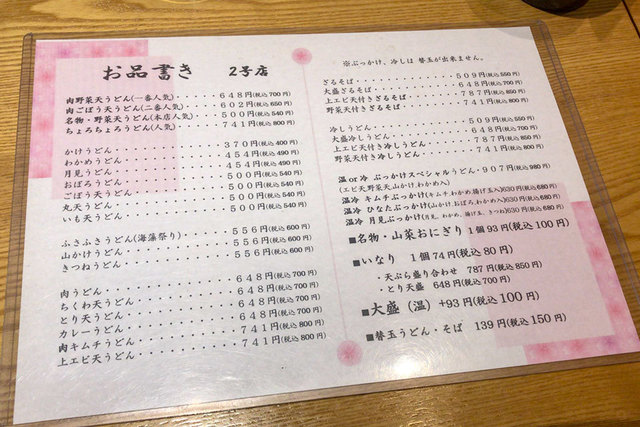 お品書き 2号店
肉野菜天うどん(一番人気)・・・・・・・648円(税込 700円)
肉ごぼう天うどん(二番人気)・・・・・・602円(税込 650円)
名物・野菜天うどん(本店人気)・・・・・500円(税込 540円)
ちょろちょろうどん(人気)・・・・・・・741円(税込 800円)
かけうどん・・・・・・・・・・・・370円(税込 400円)
わかめうどん・・・・・・・・・・・454円(税込 490円)
月見うどん・・・・・・・・・・・・454円(税込 490円)
おぼろうどん・・・・・・・・・・・500円(税込 540円)
ごぼう天うどん・・・・・・・・・・500円(税込 540円)
丸天うどん・・・・・・・・・・・・500円(税込 540円)
いも天うどん・・・・・・・・・・・500円(税込 540円)
ふさふさうどん(海藻祭り)・・・・・556円(税込 600円)
山かけうどん・・・・・・・・・・・556円(税込 600円)
きつねうどん・・・・・・・・・・・556円(税込 600円)
肉うどん・・・・・・・・・・・・・648円(税込 700円)
ちくわ天うどん・・・・・・・・・・648円(税込 700円)
とり天うどん・・・・・・・・・・・648円(税込 700円)
カレーうどん・・・・・・・・・・・648円(税込 700円)
肉キムチうどん・・・・・・・・・・741円(税込 800円)
上エビ天うどん・・・・・・・・・・741円(税込 800円)
※ぶっかけ、冷しは 替玉が出来ません。
ざるそば・・・・・・・・・・・・509円(税込 550円)
大盛ざるそば・・・・・・・・・・648円(税込 700円)
上エビ天付きざるそば・・・・・・787円(税込 850円)
野菜天付きざるそば・・・・・・・741円(税込 800円)
冷しうどん・・・・・・・・・・・509円(税込 550円)
大盛冷しうどん・・・・・・・・・648円(税込 700円)
上エビ天付き冷しうどん・・・・・787円(税込 850円)
野菜天付き冷しうどん・・・・・・741円(税込 800円)
温or冷 ぶっかけスペシャルうどん・907円(税込 980円)
(エビ天野菜天山かけわかめ入)
温冷 キムチぶっかけ(キムチわかめ揚げ玉入)630円(税込 680円)
温冷 ひなたぶっかけ(山かけおぼろわかめ入)630円(税込 680円)
温冷 月見ぶっかけ(月見、わかめ、揚げ玉、きつね)630円(税込 680円)
■名物・山菜おにぎり 1個93円(税込 100円)
■いなり 1個 74円(税込 80円)
・天ぷら盛り合わせ 787円(税込 850円)
・とり天盛 648円(税込 700円)
■大盛(温) +93円(税込 100円)
■替玉うどん・そば 139円(税込 150円)